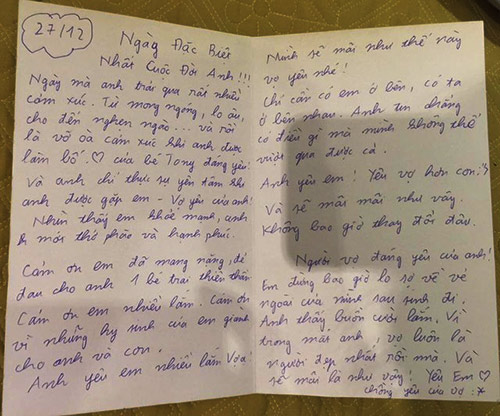 27/12
Ngày Đặc Biệt
Nhất Cuộc Đời Anh!!!
Ngày mà anh trải qua rất nhiều
cảm xúc. Từ mong ngóng, lo âu,
cho đến nghẹn ngào... và rồi
là vỡ oà cảm xúc khi anh được
làm bố. ♡ của bé Tony đáng yêu.
Và anh chỉ thực sự yên tâm khi
anh được gặp em - Vợ yêu của anh!
Nhìn thấy em khoẻ mạnh, anh
mới thở phào và hạnh phúc.
Cảm ơn em đã mang nặng, đẻ
đau cho anh 1 bé trai thiên thần
Cảm ơn em nhiều lắm. Cảm ơn
vì những hy sinh của em giành
cho anh và con.
Anh yêu em nhiều lắm Vợ ạ.
Mình sẽ mãi như thế này
vợ yêu nhé!
Chỉ cần có em ở bên, có ta
ở bên nhau. Anh tin chẳng
có điều gì mà mình không thể
vượt qua được cả.
Anh yêu em! Yêu vợ hơn con!
Và sẽ mãi mãi như vậy.
Không bao giờ thay đổi đâu.
Người vợ đáng yêu của anh!
Em đừng bao giờ lo sợ về vẻ
ngoài của mình sau sinh đi.
Anh thấy buồn cười lắm. Vì
trong mắt anh, vợ luôn là
người đẹp nhất rồi mà. Và
sẽ mãi là như vậy! Yêu Em ♡
chồng yêu của vợ :*